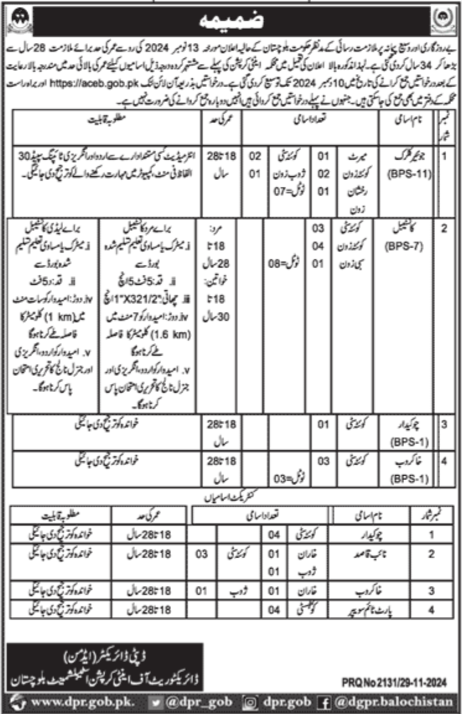 ضمیمہ
بے روزگاری اور وسیع پیمانہ پر ملازمت رسائی کے مدنظر حکومت بلوچستان کے حالیہ اعلان مورخہ 13 نومبر 2024 کی رو سے عمر کی حد برائے ملازمت 28 سال سے
بڑھا کر 34 سال کر دی گئی ہے۔ لہٰذا مذکورہ بالا اعلان کی تعمیل میں محکمہ اینٹی کرپشن کی پہلے سے مشتہر کردہ درج ذیل اسامیوں کیلئے عمر کی بالائی حد میں مندرجہ بالا رعایت
کے بعد درخواستیں جمع کرانے کی تاریخ میں 10 دسمبر 2024 تک توسیع کر دی گئی ہے۔ درخواستیں بذریعہ آن لائن لنک https://aceb.gob.pk اور براہ راست
محکمہ کے دفتر میں بھی جمع کی جاسکتی ہیں۔ جنہوں نے پہلے درخواستیں جمع کروائی ہیں انہیں دوبارہ جمع کروانے کی ضرورت نہیں ہے۔
نمبر شمار نام اسامی تعداد اسامی عمر کی حد مطلوبہ قابلیت
1 جونیئر کلرک (BPS-11) میرٹ 01 کوئٹہ سٹی 02 18 تا 28 سال انٹرمیڈیٹ کسی مستند ادارے سے اردو اور انگریزی ٹائپنگ سپیڈ 30
کوئٹہ زون 02 ژوب زون 01 الفاظ فی منٹ، کمپیوٹر میں مہارت رکھنے والے کو ترجیح دی جائیگی۔
رخشان زون 01 ٹوٹل=07
2 کانسٹیبل (BPS-7) کوئٹہ سٹی 03
کوئٹہ زون 04 ٹوٹل=08
سبی زون 01
مرد: 18 تا 28 سال
خواتین: 18 تا 30 سال
برائے مرد کانسٹیبل
i۔ میٹرک یا مساوی تعلیم تسلیم شدہ بورڈ سے
ii۔ قد: 5 فٹ 5 انچ
iii۔ چھاتی: "1X321/2" انچ
iv۔ دوڑ: امیدوار کو 7 منٹ میں
(1.6 km) کلومیٹر کا فاصلہ طے کرنا ہوگا
v۔ امیدوار کو اردو، انگریزی اور جنرل نالج کا تحریری امتحان پاس کرنا ہوگا۔
برائے لیڈی کانسٹیبل
i۔ میٹرک یا مساوی تعلیم تسلیم شدہ بورڈ سے
ii۔ قد: 5 فٹ
iv۔ دوڑ: امیدوار کو سات منٹ میں (1 km) کلومیٹر کا فاصلہ طے کرنا ہوگا
v۔ امیدوار کو اردو، انگریزی اور جنرل نالج کا تحریری امتحان پاس کرنا ہوگا۔
3 چوکیدار (BPS-1) کوئٹہ سٹی 01 18 تا 28 سال خواندہ کو ترجیح دی جائیگی
4 خاکروب (BPS-1) کوئٹہ سٹی 03 ٹوٹل=03 18 تا 28 سال خواندہ کو ترجیح دی جائیگی
کنٹریکٹ اسامیاں
نمبر شمار نام اسامی تعداد اسامی عمر کی حد مطلوبہ قابلیت
1 چوکیدار کوئٹہ سٹی 04 18 تا 28 سال خواندہ کو ترجیح دی جائیگی
2 نائب قاصد خاران 01 کوئٹہ سٹی 03 18 تا 28 سال خواندہ کو ترجیح دی جائیگی
ژوب 01
3 خاکروب خاران 01 ژوب 01 18 تا 28 سال خواندہ کو ترجیح دی جائیگی
4 پارٹ ٹائم سویپر کوئٹہ سٹی 04 18 تا 28 سال خواندہ کو ترجیح دی جائیگی
ڈپٹی ڈائریکٹر (ایڈمن)
ڈائریکٹوریٹ آف اینٹی کرپشن اسٹیبلشمنٹ بلوچستان
PRQ No 2131/29-11-2024
www.dpr.gob.pk. @dpr_gob dpr.gob @dgpr.balochistan